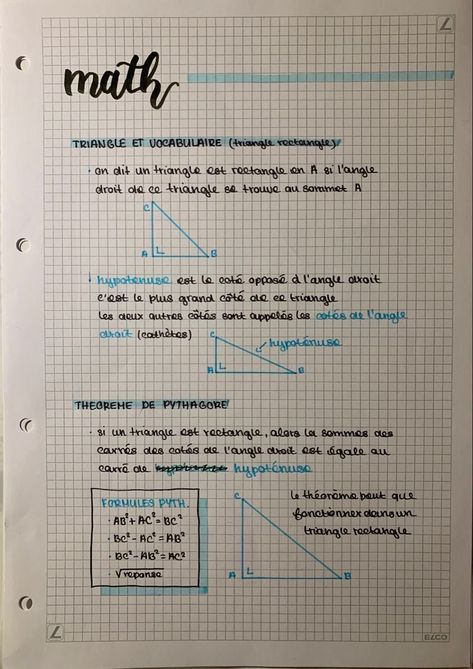 math
TRIANGLE ET VOCABULAIRE (triangle rectangle)
· on dit un triangle est rectangle en A si l'angle
droit de ce triangle se trouve au sommet A
C
A B
· hypoténuse est le coté opposé à l'angle droit
c'est le plus grand côté de ce triangle
les deux autres côtés sont appelés les cotés de l'angle
droit (cathètes)
C
hypoténuse
A B
THEOREME DE PYTHAGORE
· si un triangle est rectangle, alors la sommes des
carrés des cotés de l'angle droit est égale au
carré de hypoténuse
FORMULES PYTH.
· AB² + AC² = BC²
· BC² - AC² = AB²
· BC² - AB² = AC²
· √reponse
C
A B
le théorème peut que
fonctionner dans un
triangle rectangle
ELCO